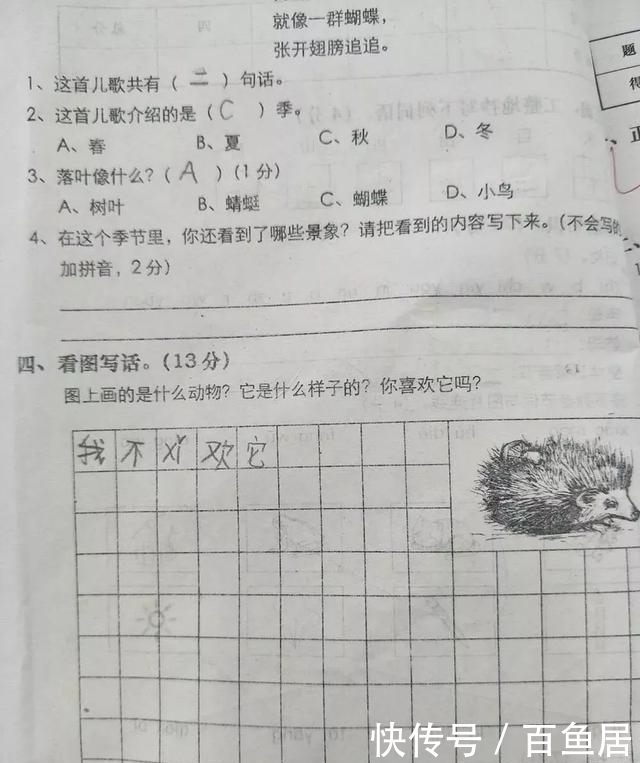 就像一群蝴蝶，
张开翅膀追追。
题
1、这首儿歌共有（ 二 ）句话。
得
2、这首儿歌介绍的是（ C ）季。
A、春 B、夏 C、秋 D、冬
正
3、落叶像什么？（ A ）（1分）
A、树叶 B、蜻蜓 C、蝴蝶 D、小鸟
4、在这个季节里，你还看到了哪些景象？请把看到的内容写下来。（不会写的
加拼音，2分）
四、看图写话。（13分）
图上画的是什么动物？它是什么样子的？你喜欢它吗？
我不xǐ欢它
快传号／百鱼居